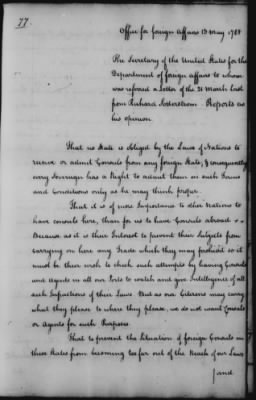 77
Office for foreign Affairs 13 May 1788
The Secretary of the United States for the
Department of foreign Affairs to whom
was referred a Letter of the 21 March last
from Richard Soderstrom. Reports as
his opinion
That no State is obliged by the Laws of Nations to
receive or admit Consuls from any foreign State, & consequently
every Sovereign has a Right to admit them on such Terms
and Conditions only as he may think proper.
That it is of more Importance to other Nations to
have consuls here, than for us to have Consuls abroad
Because as it is their Interest to prevent their Subjects from
carrying on here any Trade which they may prohibit so it
must be their wish to check such attempts by having Consuls
and Agents in all our Ports to watch and give Intelligence of all
such Infractions of their Laws. But as our Citizens may carry
what they please to where they please, we do not want Consuls
or Agents for such Purposes.
That to prevent the Situation of foreign Consuls in
these States from becoming too far out of the Reach of our Laws
/and